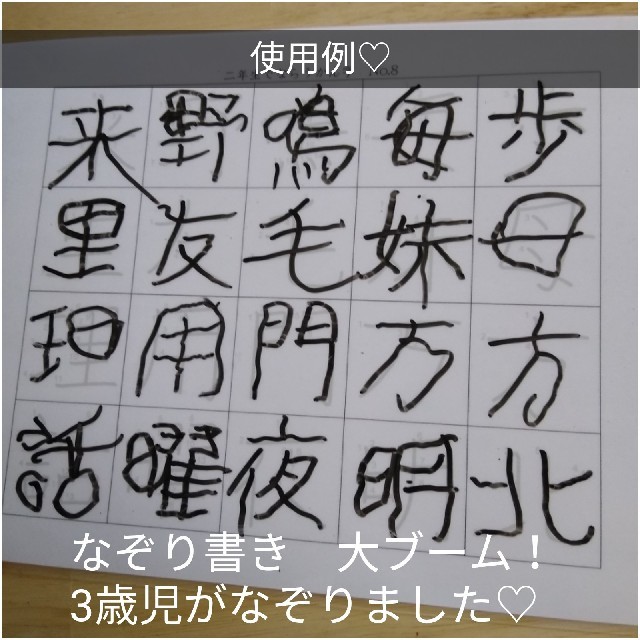 使用例♡
二年生 No.8
歩母方北
毎妹万明
鳴毛門夜
野友用曜
来里理話
なぞり書き　大ブーム！
3歳児がなぞりました♡